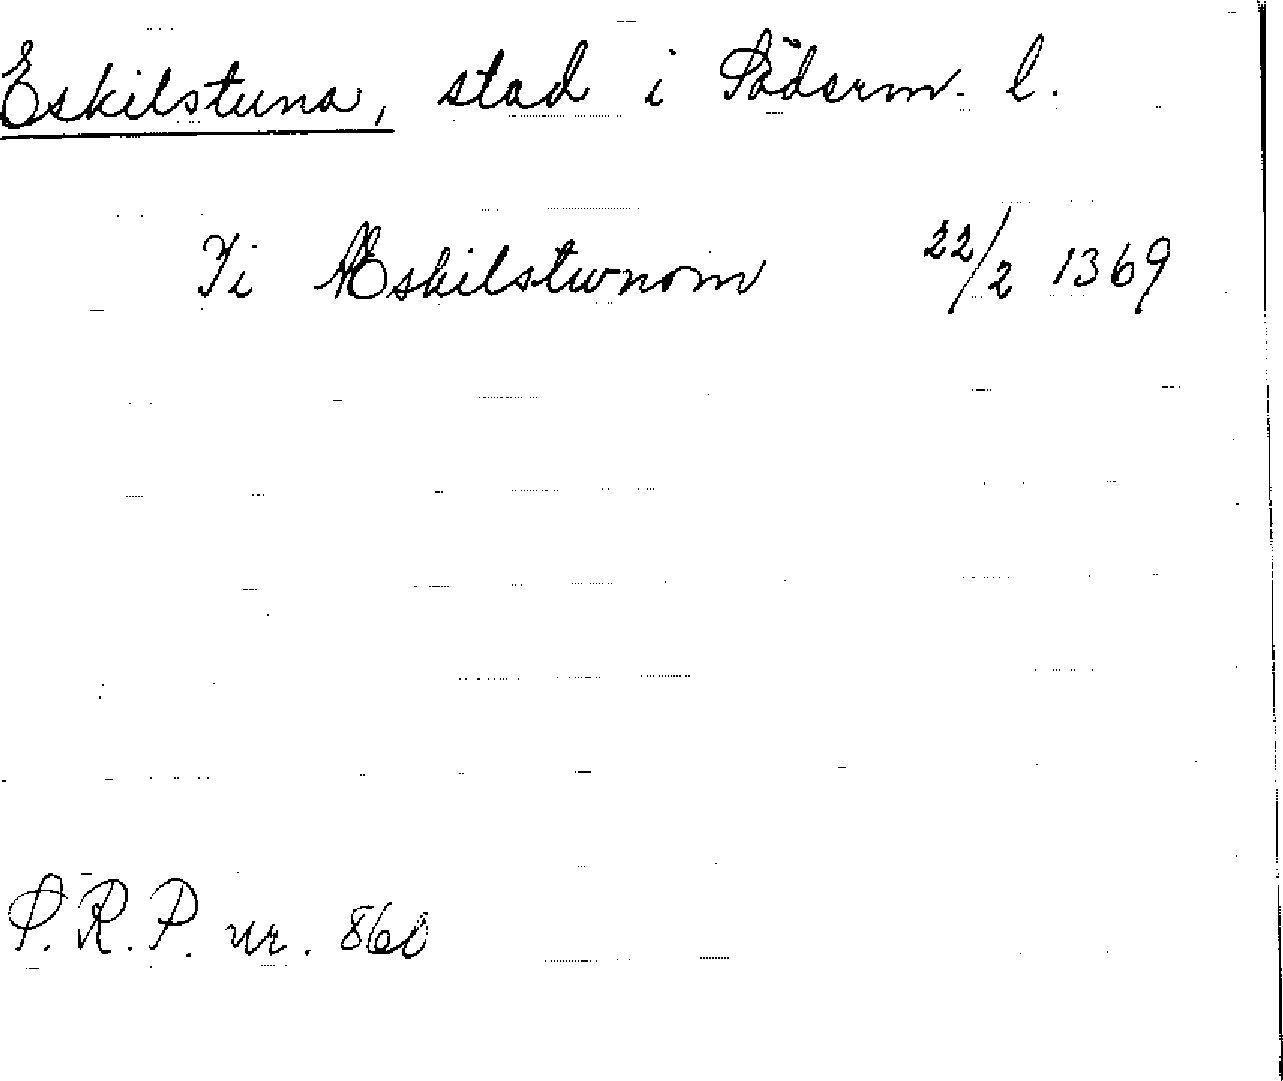 Eskilstuna, stad i Söderm. l.
Vi Æskilstunom 22/2 1369
S.R.P. nr. 860